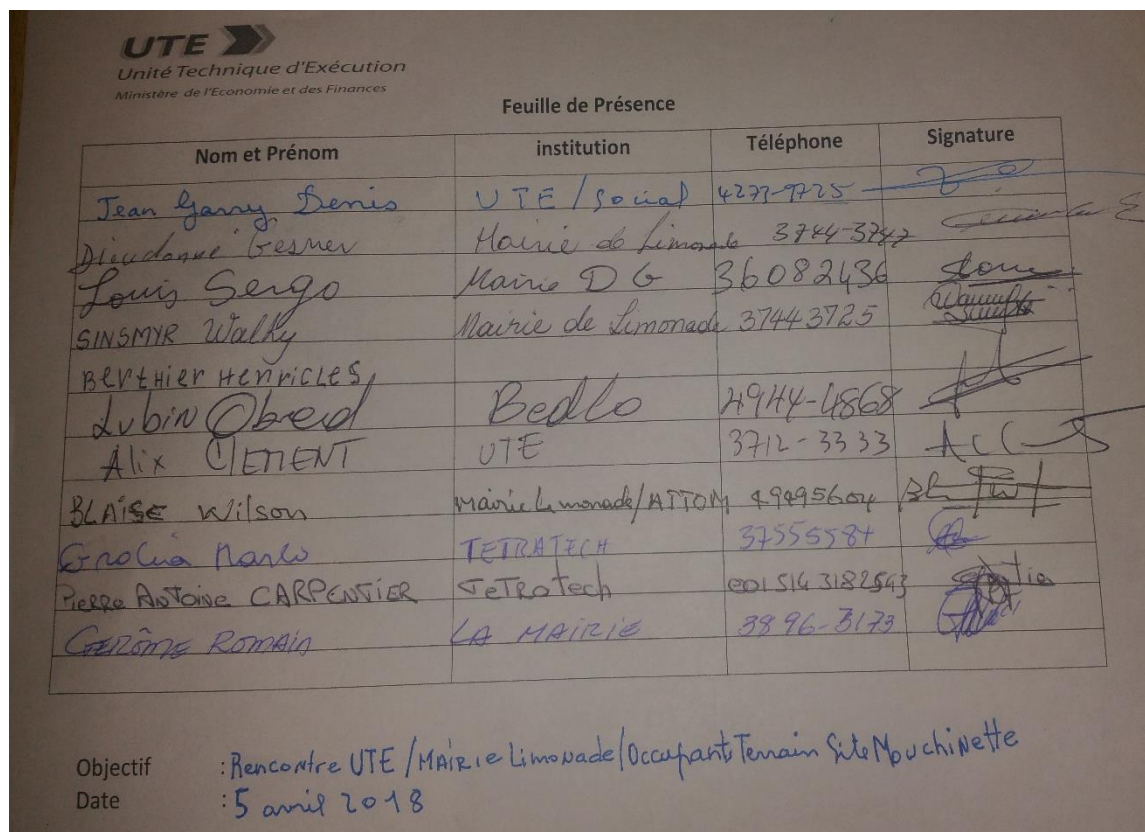 UTE
Unité Technique d'Exécution
Ministère de l'Economie et des Finances
Feuille de Présence
Nom et Prénom institution Téléphone Signature
Jean Garry Denis UTE/Social 4277-9725
Dieudonné Gesner Mairie de Limonade 3744-3747
Louis Sergo Mairie DG 36082436
SINSMYR Walky Mairie de Limonade 37443725
BERtHier HenricLES
Lubin Obed Bedlo 4944-4868
Alix CLEMENT UTE 3712-3333
BLAISE Wilson Mairie Limonade/ATTOM 49495604
TETRATECH 37555587
Pierre Antoine CARPENTIER TeTraTech 001 514 3182543
GERÔME ROMAIN LA MAIRIE 3896-3173
Objectif : Rencontre UTE/MAIRIE Limonade/Occupant Terrain Site MouchiNette
Date : 5 avril 2018